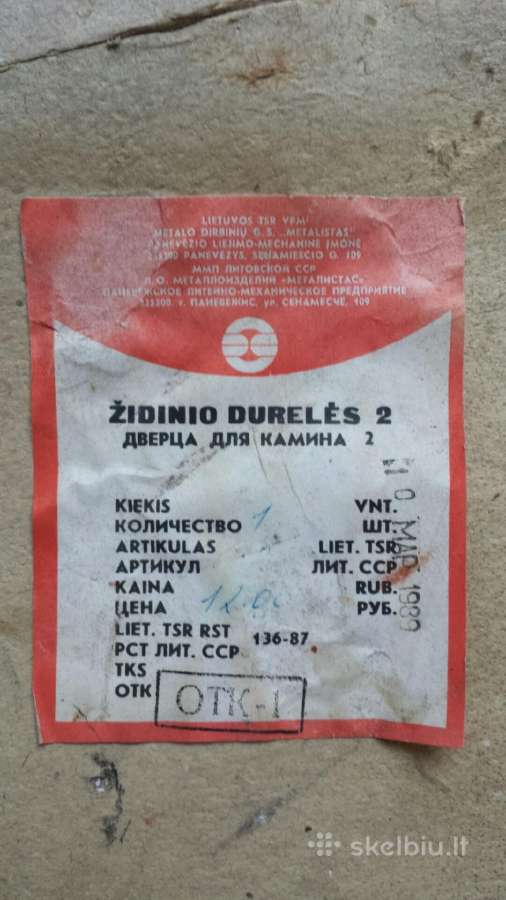 LIETUVOS TSR VPMI
METALO DIRBINIŲ G. S. „METALISTAS"
PANEVĖŽIO LIEJIMO-MECHANINĖ ĮMONĖ
PANEVĖŽYS, SENAMIESČIO G. 109
ММП ЛИТОВСКОЙ ССР
П.О. МЕТАЛЛОИЗДЕЛИЙ «МЕТАЛИСТАС»
ПАНЕВЕЖСКОЕ ЛИТЕЙНО-МЕХАНИЧЕСКОЕ ПРЕДПРИЯТИЕ
235300, г. ПАНЕВЕЖИС, ул. СЕНАМЕСЧЕ, 109
ŽIDINIO DURELĖS 2
ДВЕРЦА ДЛЯ КАМИНА 2
KIEKIS VNT.
КОЛИЧЕСТВО 1 ШТ.
ARTIKULAS LIET. TSR
АРТИКУЛ ЛИТ. ССР
KAINA RUB.
ЦЕНА РУБ.
LIET. TSR RST 136-87
РСТ ЛИТ. ССР
TKS
ОТК ОТК-1
МАР 1989
skelbiu.lt